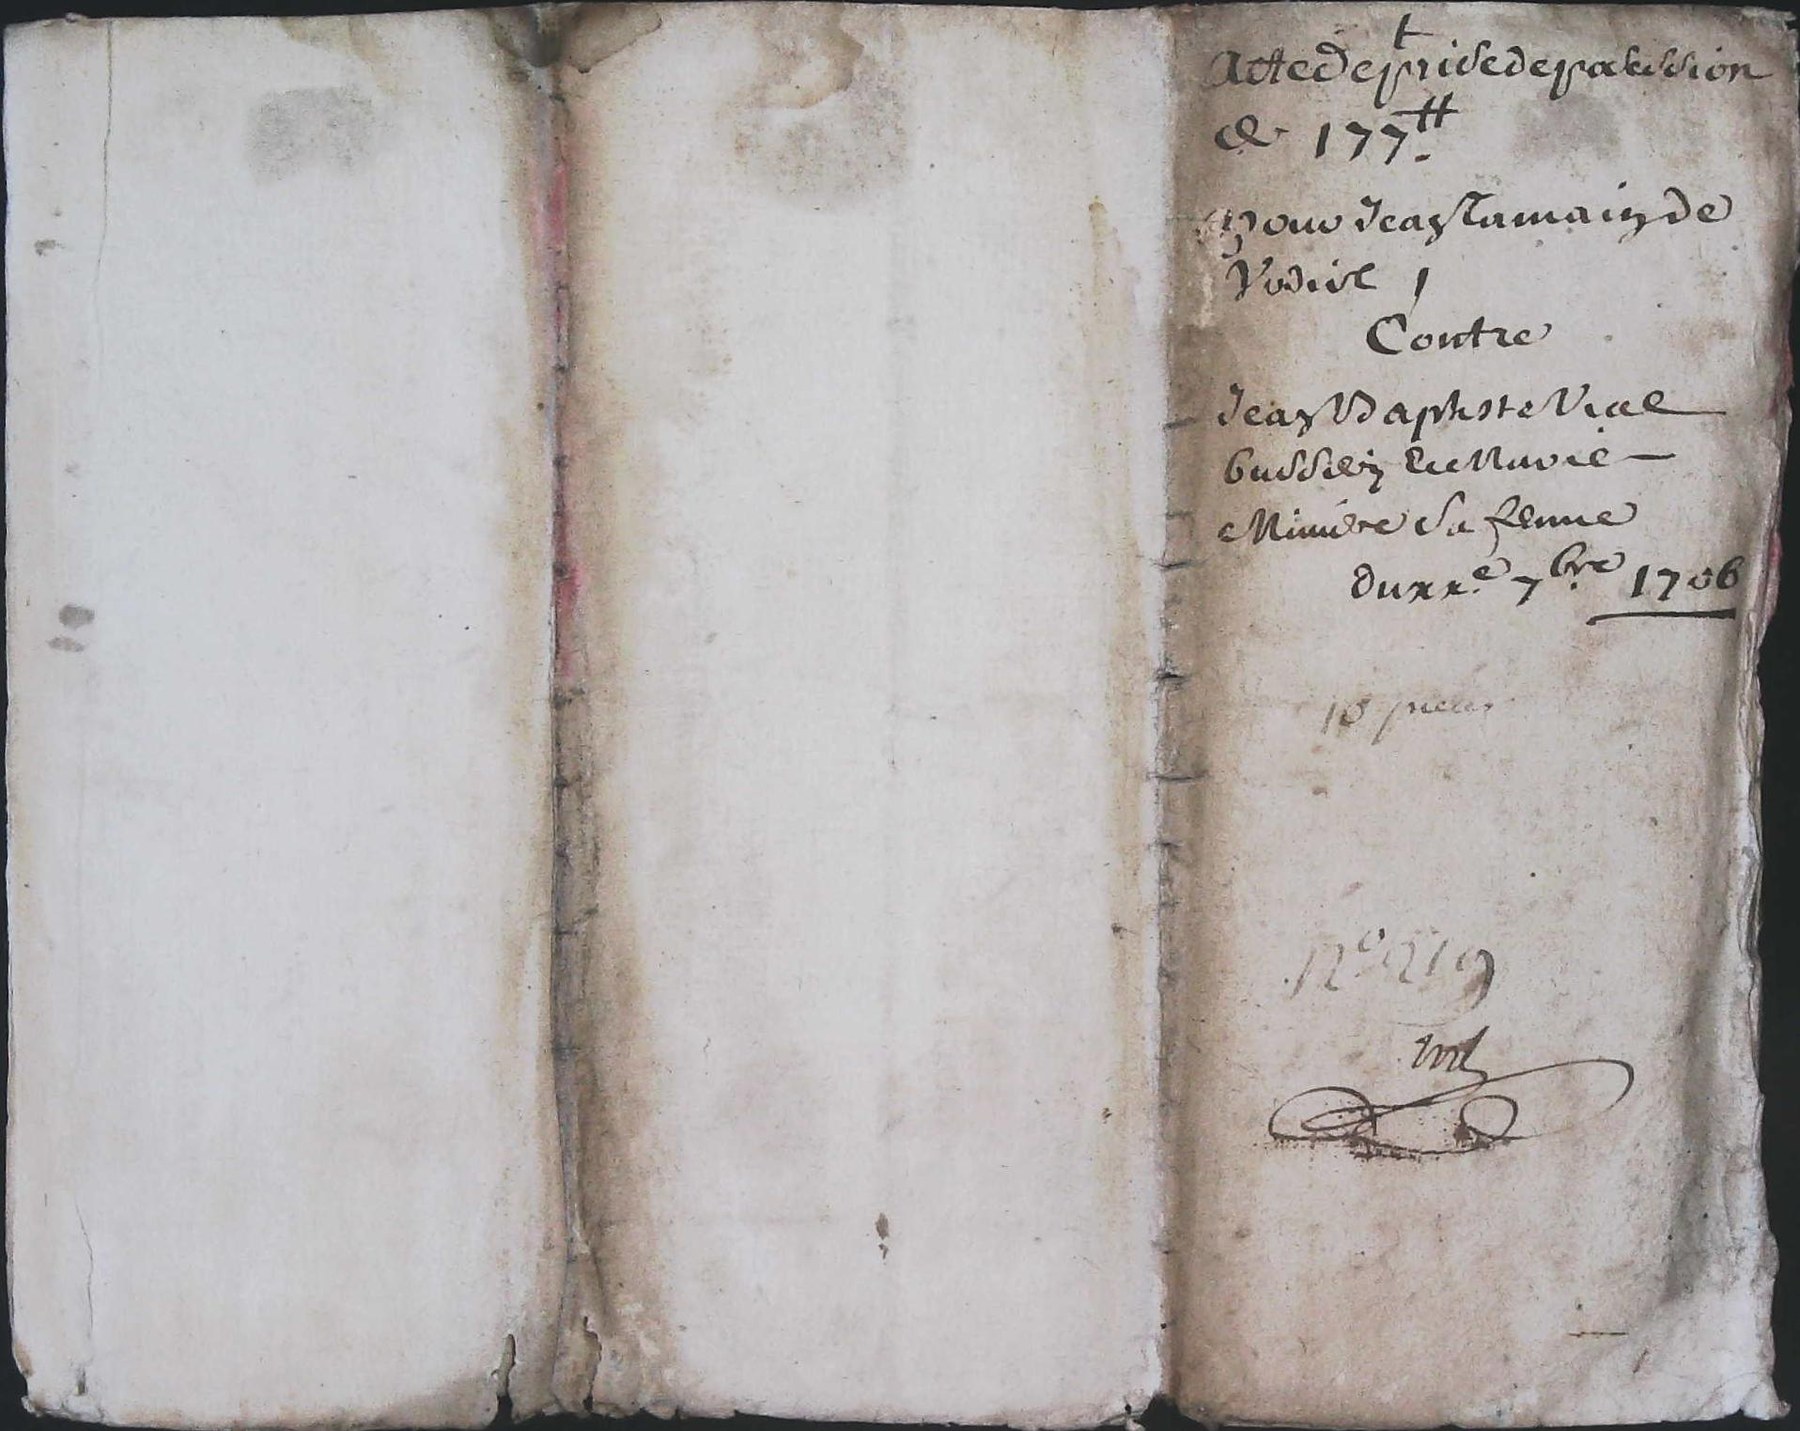 Acte de prise de possession
de 177ₗₜ
pour Jean Tamain de
Contre
Jean Baptiste Vial
et Marie
sa femme
du xx.e 7.bre 1706
10 pieces
N° 219